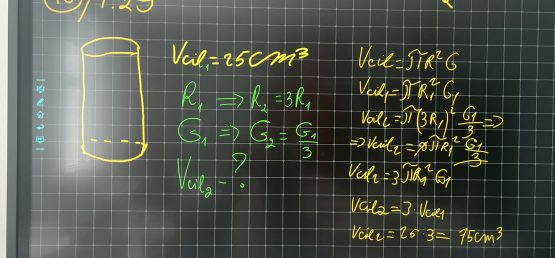 Vcil₁ = 25cm³
R₁ ⟹ R₂ = 3R₁
G₁ ⟹ G₂ = G₁/3
Vcil₂ - ?
Vcil = πR²G
Vcil₁ = πR₁²G₁
Vcil₂ = π(3R₁)² G₁/3 ⟹
⟹ Vcil₂ = 9πR₁² G₁/3
Vcil₂ = 3πR₁²G₁
Vcil₂ = 3·Vcil₁
Vcil₂ = 25·3 = 75cm³